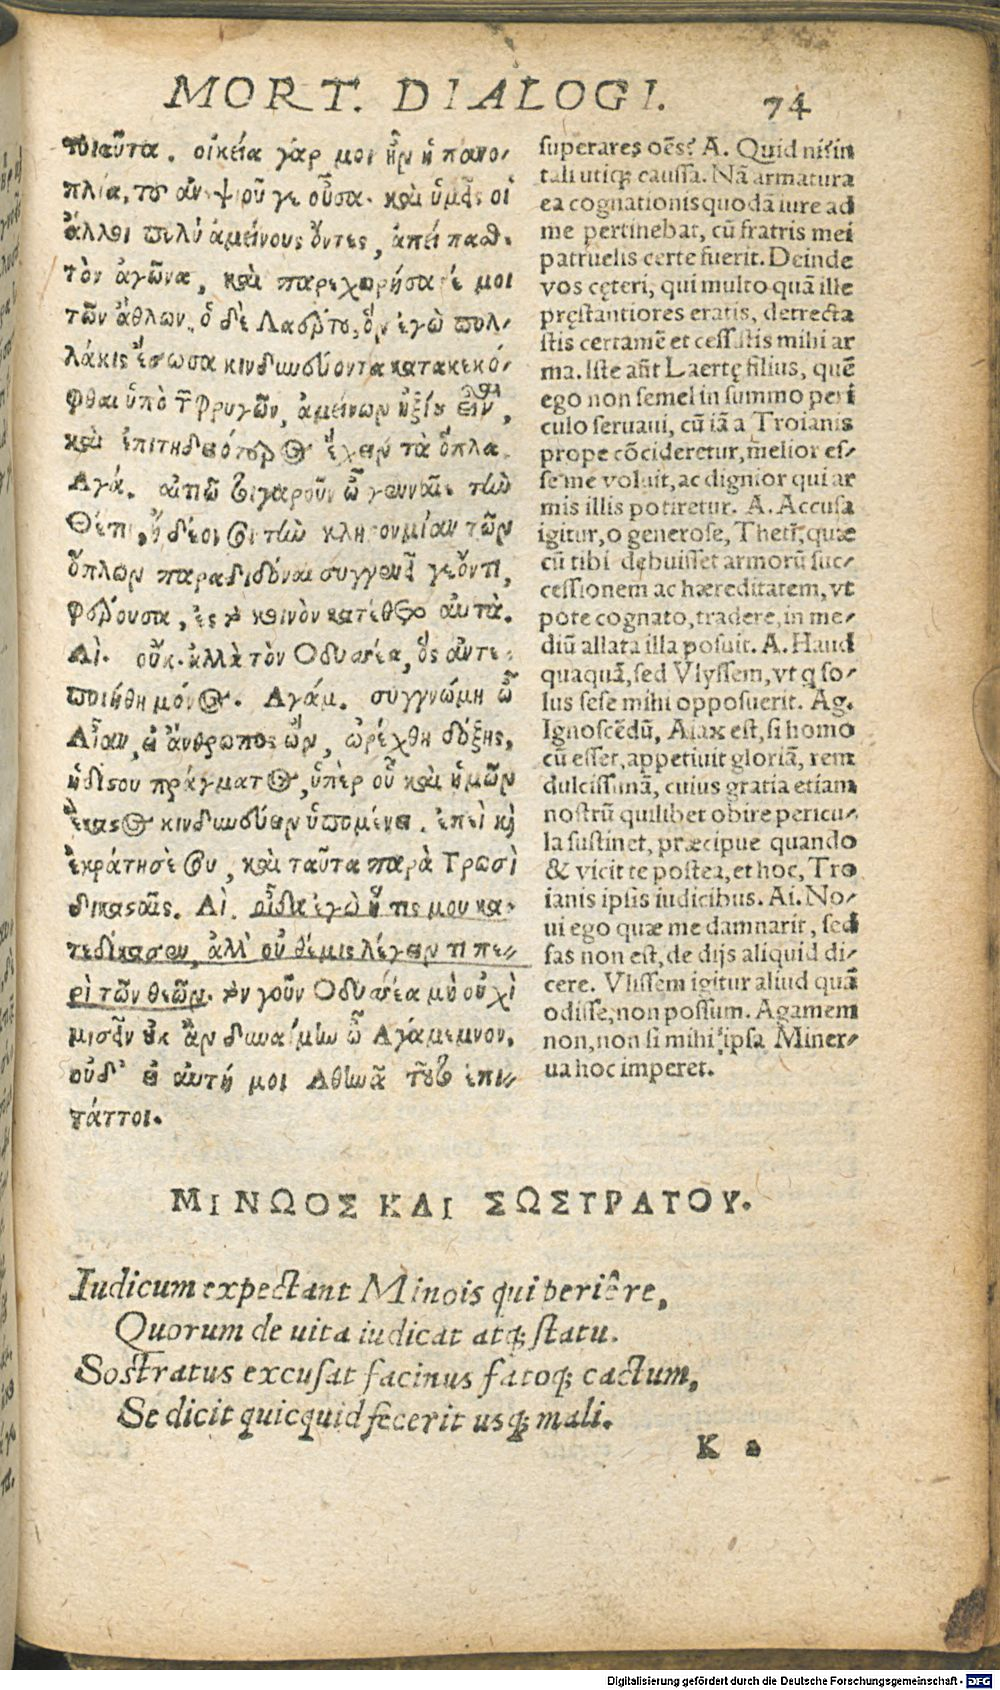 MORT. DIALOGI. 74
τοιαῦτα. οἰκεία γάρ μοι ἦν ἡ πανο-
πλία, τοῦ ἀνεψιοῦ γε οὖσα. καὶ ὑμεῖς οἱ
ἄλλοι πολὺ ἀμείνους ὄντες, ἀπείπασθε
τὸν ἀγῶνα, καὶ παρεχωρήσατέ μοι
τῶν ἄθλων. ὁ δὲ Λαέρτου, ὃν ἐγὼ πολ-
λάκις ἔσωσα κινδυνεύοντα κατακεκό-
φθαι ὑπὸ τῶν Φρυγῶν, ἀμείνων ἠξίου εἶναι,
καὶ ἐπιτηδειότερος ἔχειν τὰ ὅπλα.
Αγά. αἰτιῶ τοιγαροῦν ὦ γενναῖε τὴν
Θέτιν, ἣ δέον σοι τὴν κληρονομίαν τῶν
ὅπλων παραδιδόναι συγγενεῖ γε ὄντι,
φέρουσα, ἐς τὸ κοινὸν κατέθετο αὐτά.
Αἴ. οὐκ. ἀλλὰ τὸν Οδυσσέα, ὃς ἀντε-
ποιήθη μόνος. Αγάμ. συγγνώμη ὦ
Αἶαν, εἰ ἄνθρωπος ὢν, ὠρέχθη δόξης,
ἡδίστου πράγματος, ὑπὲρ οὗ καὶ ἡμῶν
ἕκαστος κινδυνεύειν ὑπομένει. ἐπεὶ καὶ
ἐκράτησέ σου, καὶ ταῦτα παρὰ Τρωσὶ
δικασταῖς. Αἴ. οἶδα ἐγὼ ἥτις μου κα-
τεδίκασεν, ἀλλ' οὐ θέμις λέγειν τι πε-
ρὶ τῶν θεῶν. τὸν γοῦν Οδυσσέα μὴ οὐχὶ
μισεῖν οὐκ ἂν δυναίμην ὦ Αγάμεμνον,
οὐδ' εἰ αὐτή μοι Αθηνᾶ τοῦτο ἐπι-
τάττοι.
superares oēs? A. Quid nisi in
tali utiq; caussa. Nā armatura
ea cognationis quodā iure ad
me pertinebat, cū fratris mei
patruelis certe fuerit. Deinde
vos cęteri, qui multo quā ille
pręstantiores eratis, detrecta
stis certamē et cessistis mihi ar
ma. Iste aūt Laertę filius, quē
ego non semel in summo peri
culo seruaui, cū iā a Troianis
prope cōcideretur, melior es-
se me voluit, ac dignior qui ar
mis illis potiretur. A. Accusa
igitur, o generose, Thetī, quæ
cū tibi debuisset armorū suc-
cessionem ac hæreditatem, vt
pote cognato, tradere, in me-
diū allata illa posuit. A. Haud
quaquā, sed Vlyssem, vt q so-
lus sese mihi opposuerit. Ag.
Ignoscēdū, Aiax est, si homo
cū esset, appetiuit gloriā, rem
dulcissimā, cuius gratia etiam
nostrū quilibet obire pericu-
la sustinet, præcipue quando
& vicit te postea, et hoc, Tro
ianis ipsis iudicibus. Ai. No-
ui ego quæ me damnarit, sed
fas non est, de dijs aliquid di-
cere. Vlissem igitur aliud quā
odisse, non possum. Agamem
non, non si mihi ipsa Miner-
ua hoc imperet.
ΜΙΝΩΟΣ ΚΑΙ ΣΩΣΤΡΑΤΟΥ.
Iudicum expectant Minois qui periêre,
Quorum de uita iudicat atq; statu.
Sostratus excusat facinus fatoq; coactum,
Se dicit quicquid fecerit usq; mali.
K 2
Digitalisierung gefördert durch die Deutsche Forschungsgemeinschaft - DFG